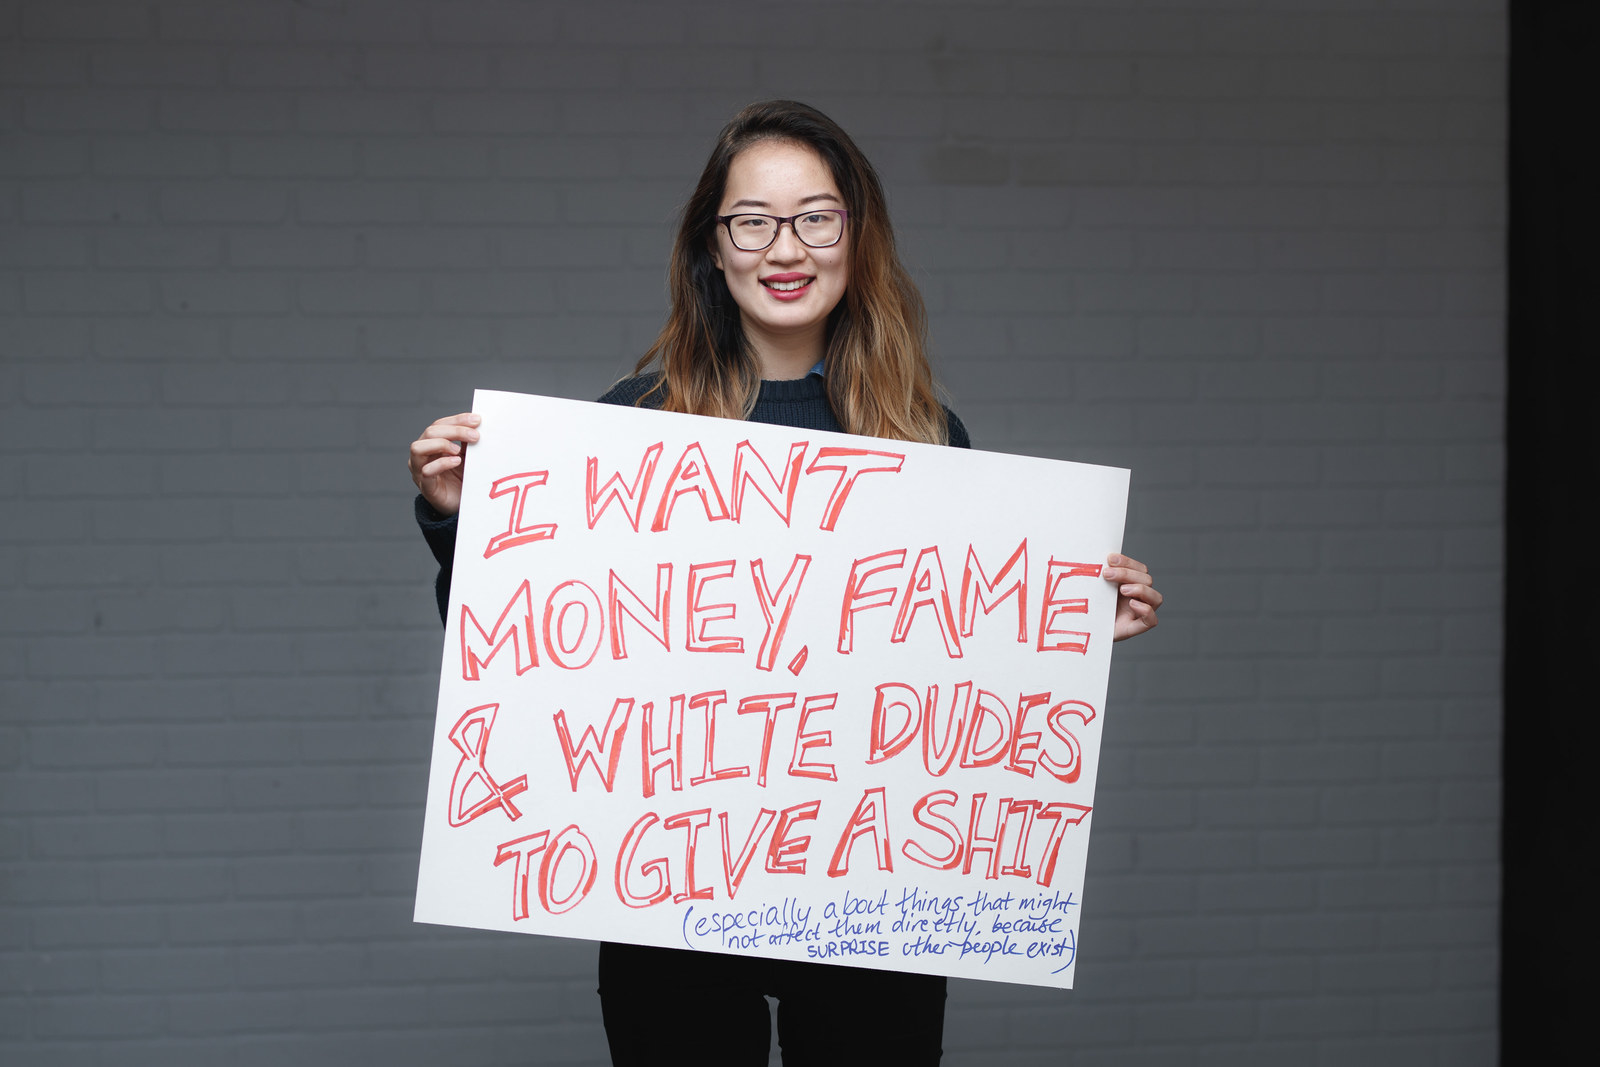 I WANT
MONEY, FAME
& WHITE DUDES
TO GIVE A SHIT
(especially about things that might
not affect them directly, because
SURPRISE other people exist)